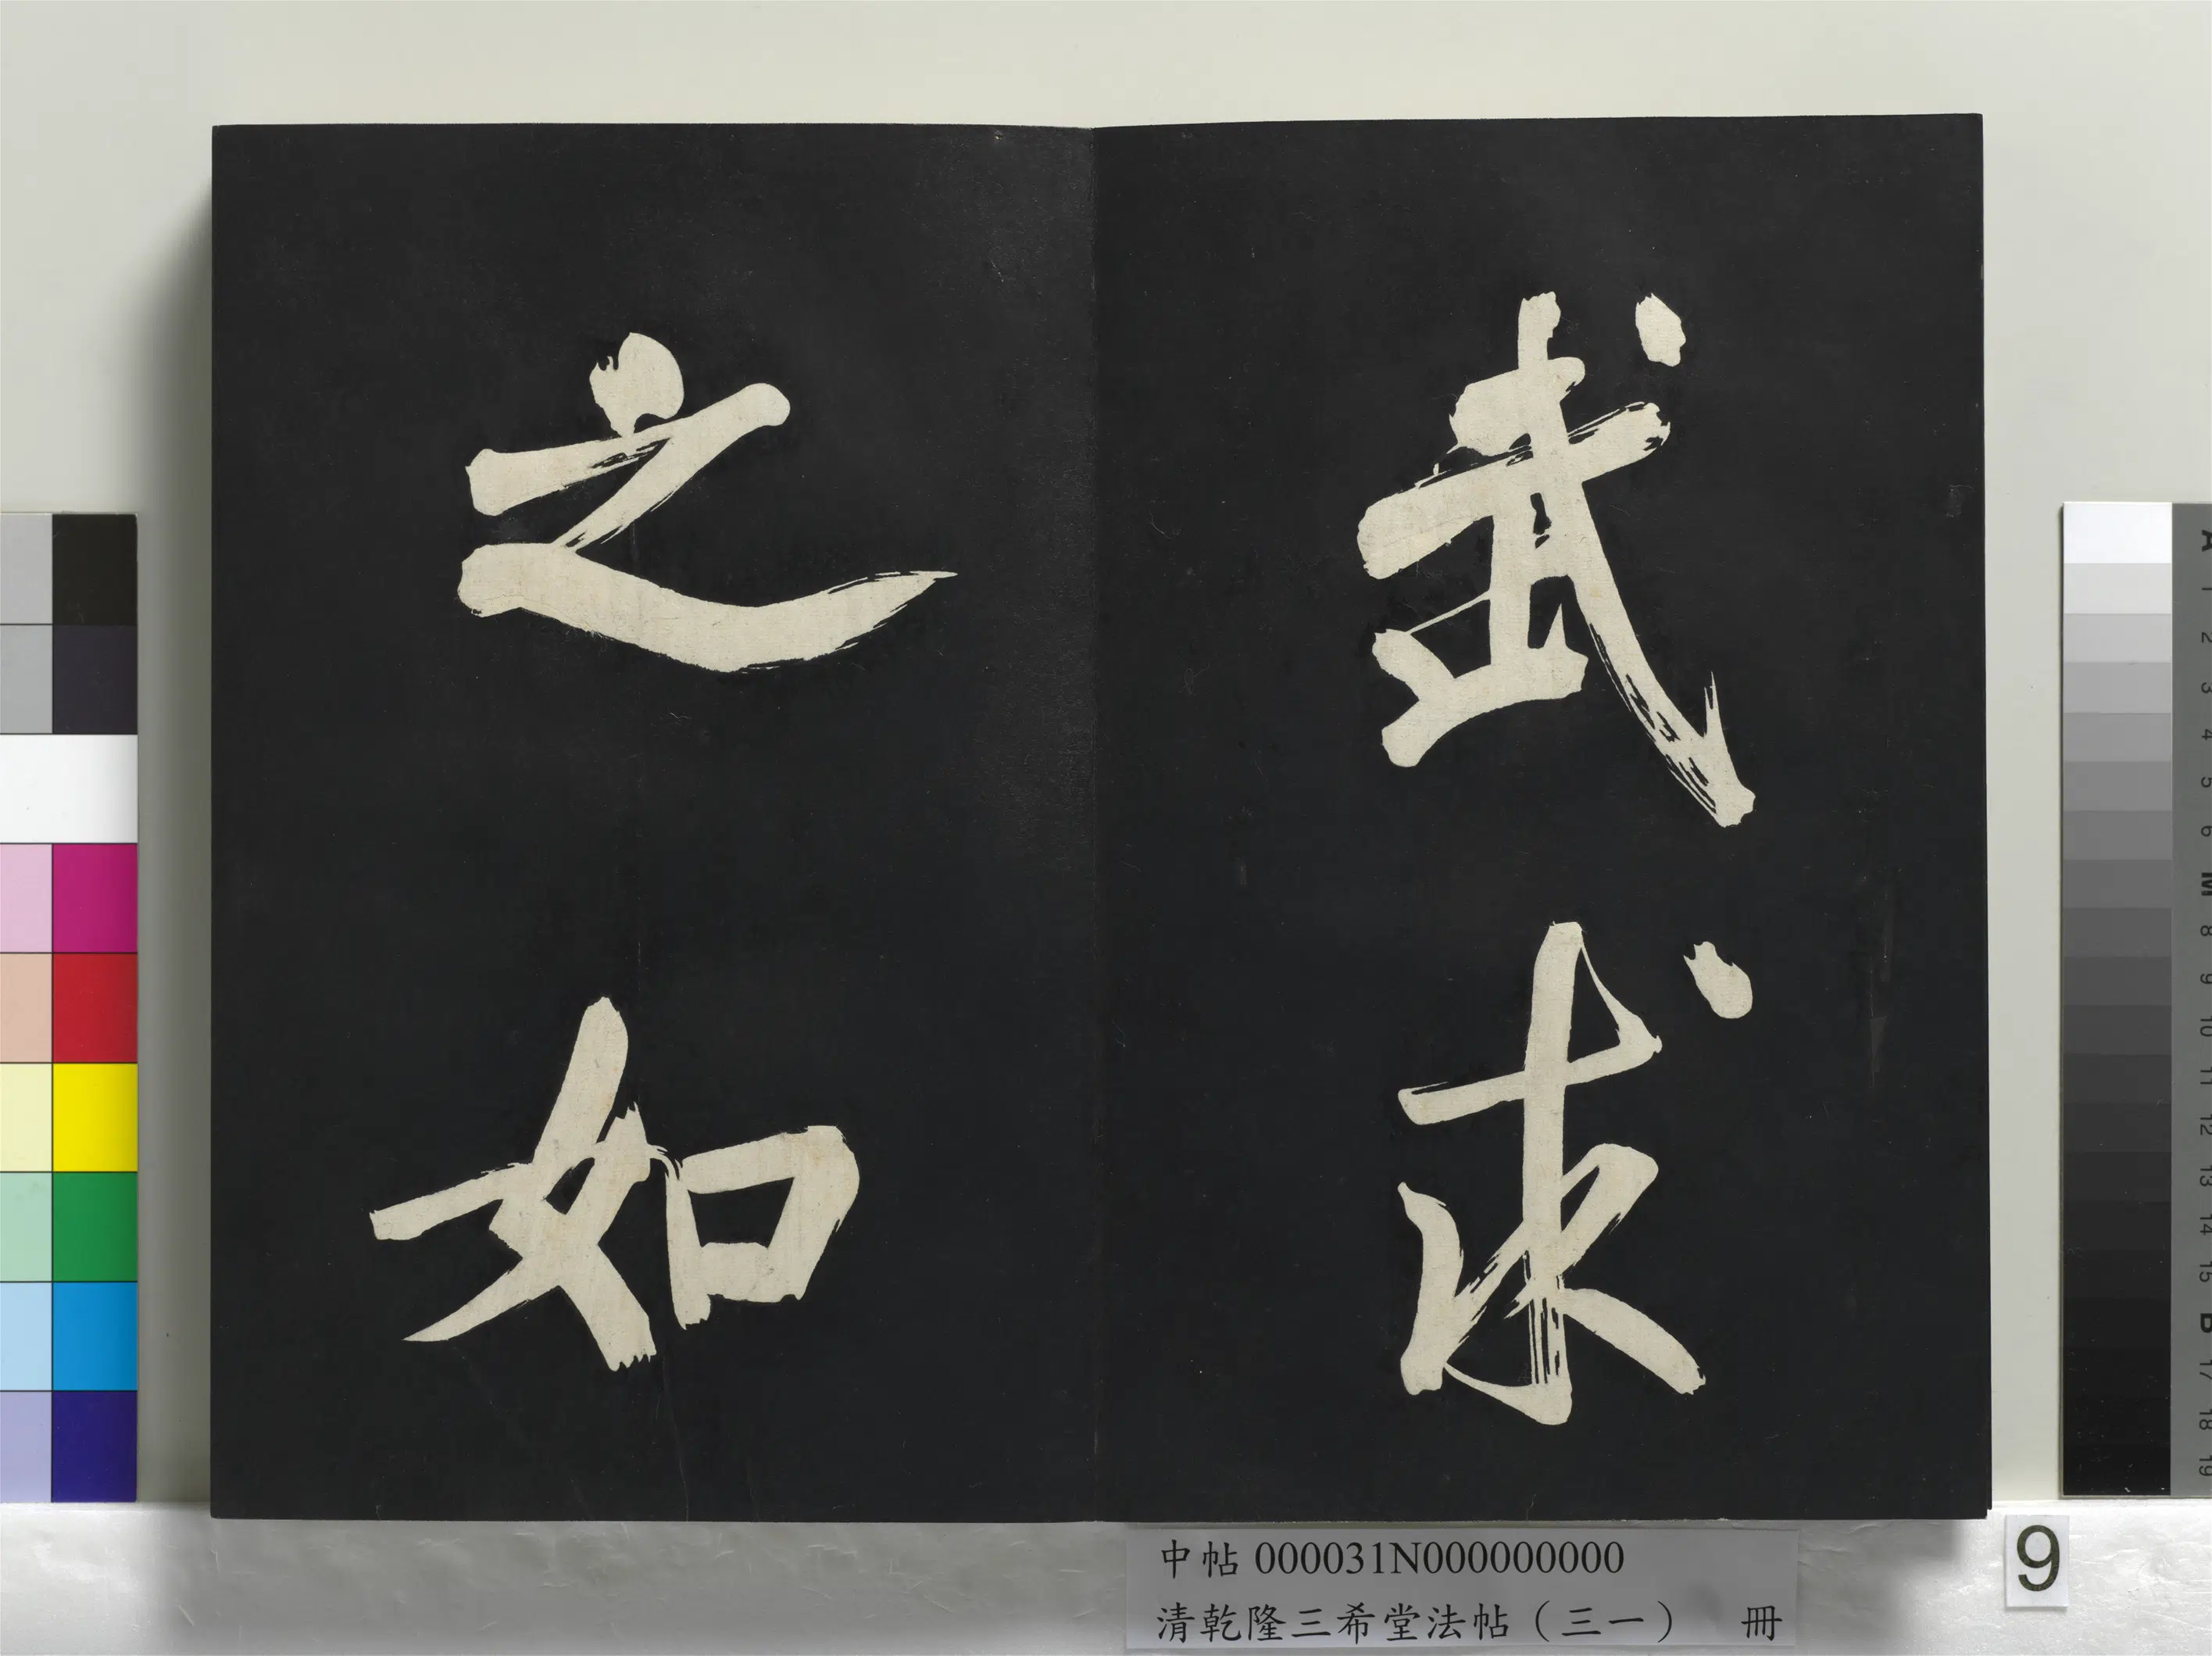 武求
之如
中帖 000031N000000000
清乾隆三希堂法帖（三一） 冊
9
A
1
2
3
4
5
6
M
8
9
10
11
12
13
14
15
B
17
18
19